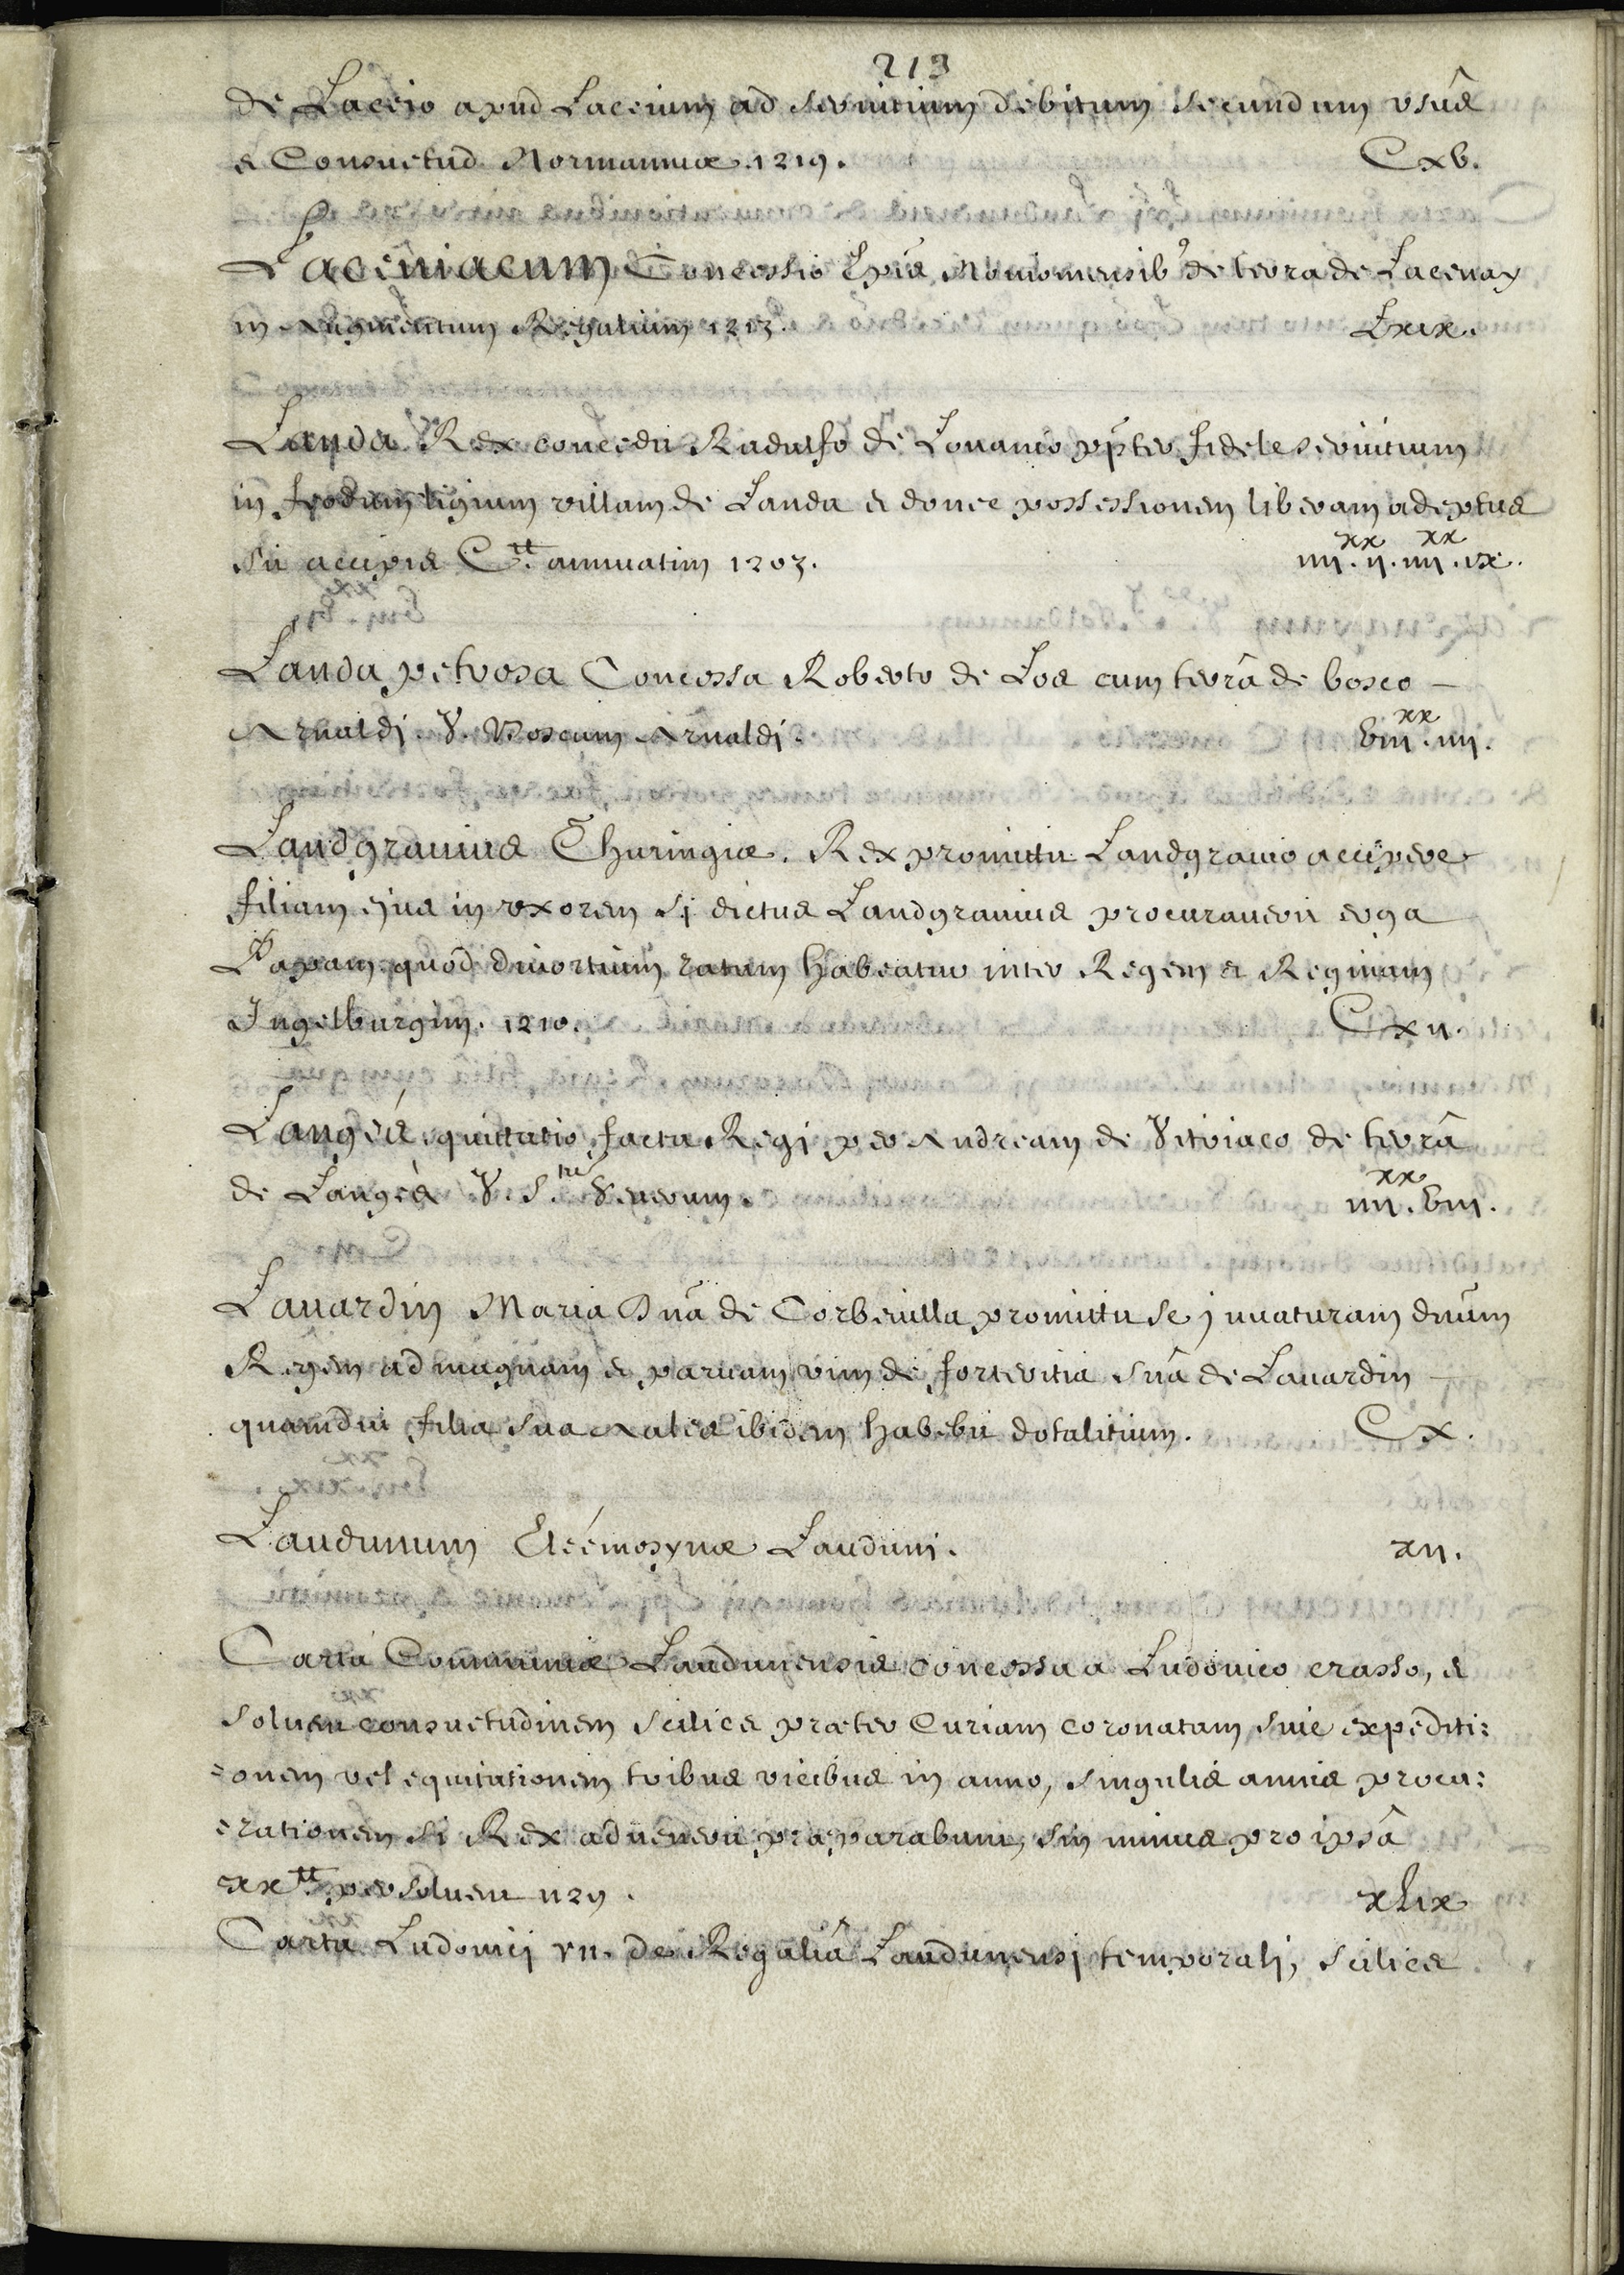 213
de Laceio apud Laceium ad servitium debitum secundum usus
et Consuetud Normanniæ. 1219. Cxv.
Laceniacum Concessio Epis Noviomensib9 de terra de Lacenay
in Augmentum Regalium 1213. Lxix.
Landa Rex concedit Radulfo de Lovanio ppter fidele servitium
in feodum ligium villam de Landa et donec possessionem liberam adeptus
sit accipiet C.tt annuatim 1203. iiii.xx ii. iiii.xx ix.
Landa petrosa Concessa Roberto de Los cum terrâ de bosco —
Arnaldi. V. Boscum Arnaldi. viii.xx iiii.
Landgravius Thuringiæ. Rex promittit Landgravio accipere
filiam ejus in uxorem si dictus Landgravius procuraverit erga
Papam quòd divortium ratum habeatur inter Regem et Reginam
Ingelburgim. 1210. Cxii.
Langés quittatio facta Regi per Andream de Vitriaco de terrâ
de Langés V. S.tus Verum. iiii.xx viii.
Lavardin Maria Dña de Corbevilla promittit se juvaturam dnūm
Regem ad magnam et parvam vim de forteritia suâ de Lavardin —
quamdiu filia sua Aales ibidem habebit dotalitium. Cx.
Laudunum Eleemosynæ Lauduni. xii.
Carta Communiæ Laudunensis concessa a Ludovico crasso, et
solvent consuetudinem scilicet præter Curiam coronatam sive expediti:
=onem vel equitationem tribus vicibus in anno, singulis annis procu:
=rationem si Rex advenerit præparabunt, sin minus pro ipsâ
xx.tt persolvent 1129. xlix
Carta Ludovici vii. de Regaliâ Laudunensi temporali, scilicet